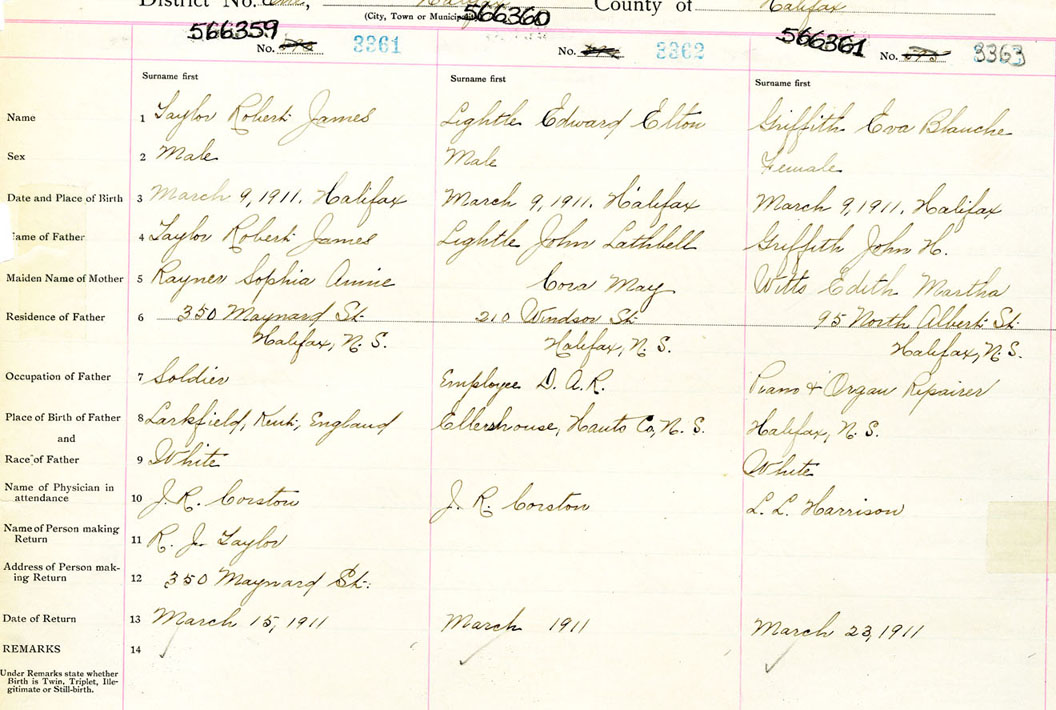 District No. One, County of Halifax
(City, Town or Municipality)
566359 566360 566361
No. 3361 No. 3362 No. 3363
Surname first Surname first Surname first
Name 1 Taylor Robert James Lightle Edward Elton Griffith Eva Blanche
Sex 2 Male Male Female
Date and Place of Birth 3 March 9, 1911. Halifax March 9, 1911. Halifax March 9, 1911. Halifax
Name of Father 4 Taylor Robert James Lightle John Lathbell Griffith John H.
Maiden Name of Mother 5 Rayner Sophia Annie Cora May Witts Edith Martha
Residence of Father 6 350 Maynard St. 210 Windsor St. 95 North Albert St.
Halifax, N.S. Halifax, N.S. Halifax, N.S.
Occupation of Father 7 Soldier Employee D.A.R. Piano & Organ Repairer
Place of Birth of Father 8 Larkfield, Kent, England Ellershouse, Hants Co, N.S. Halifax, N.S.
and
Race of Father 9 White White
Name of Physician in
attendance 10 J.R. Corston J.R. Corston L.L. Harrison
Name of Person making
Return 11 R. J. Taylor
Address of Person mak-
ing Return 12 350 Maynard St.
Date of Return 13 March 15, 1911 March 1911 March 23, 1911
REMARKS 14
Under Remarks state whether
Birth is Twin, Triplet, Ille-
gitimate or Still-birth.